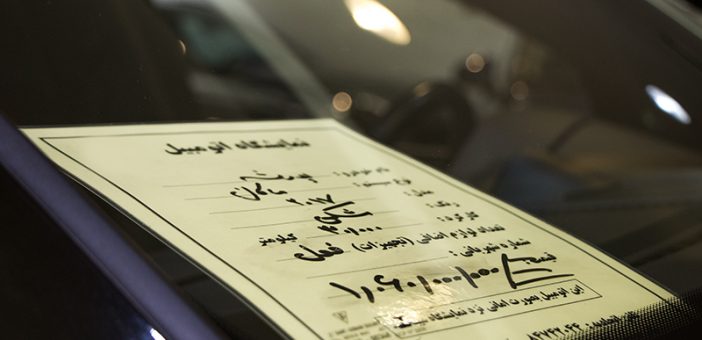 نمایشگاه اتومبیل
نام خودرو : پورشه
نوع سیستم : ماکان
مدل : ۲۰۱۷
رنگ : مشکی
کارکرد : ۳۰٫۰۰۰ کیلومتر
تعداد لوازم اضافی (تجهیزات) فول
شماره شهربانی :
قیمت
۱٫۰۶۰٫۰۰۰٫۰۰۰
این اتومبیل بصورت امانی نزد نمایشگاه میباشد